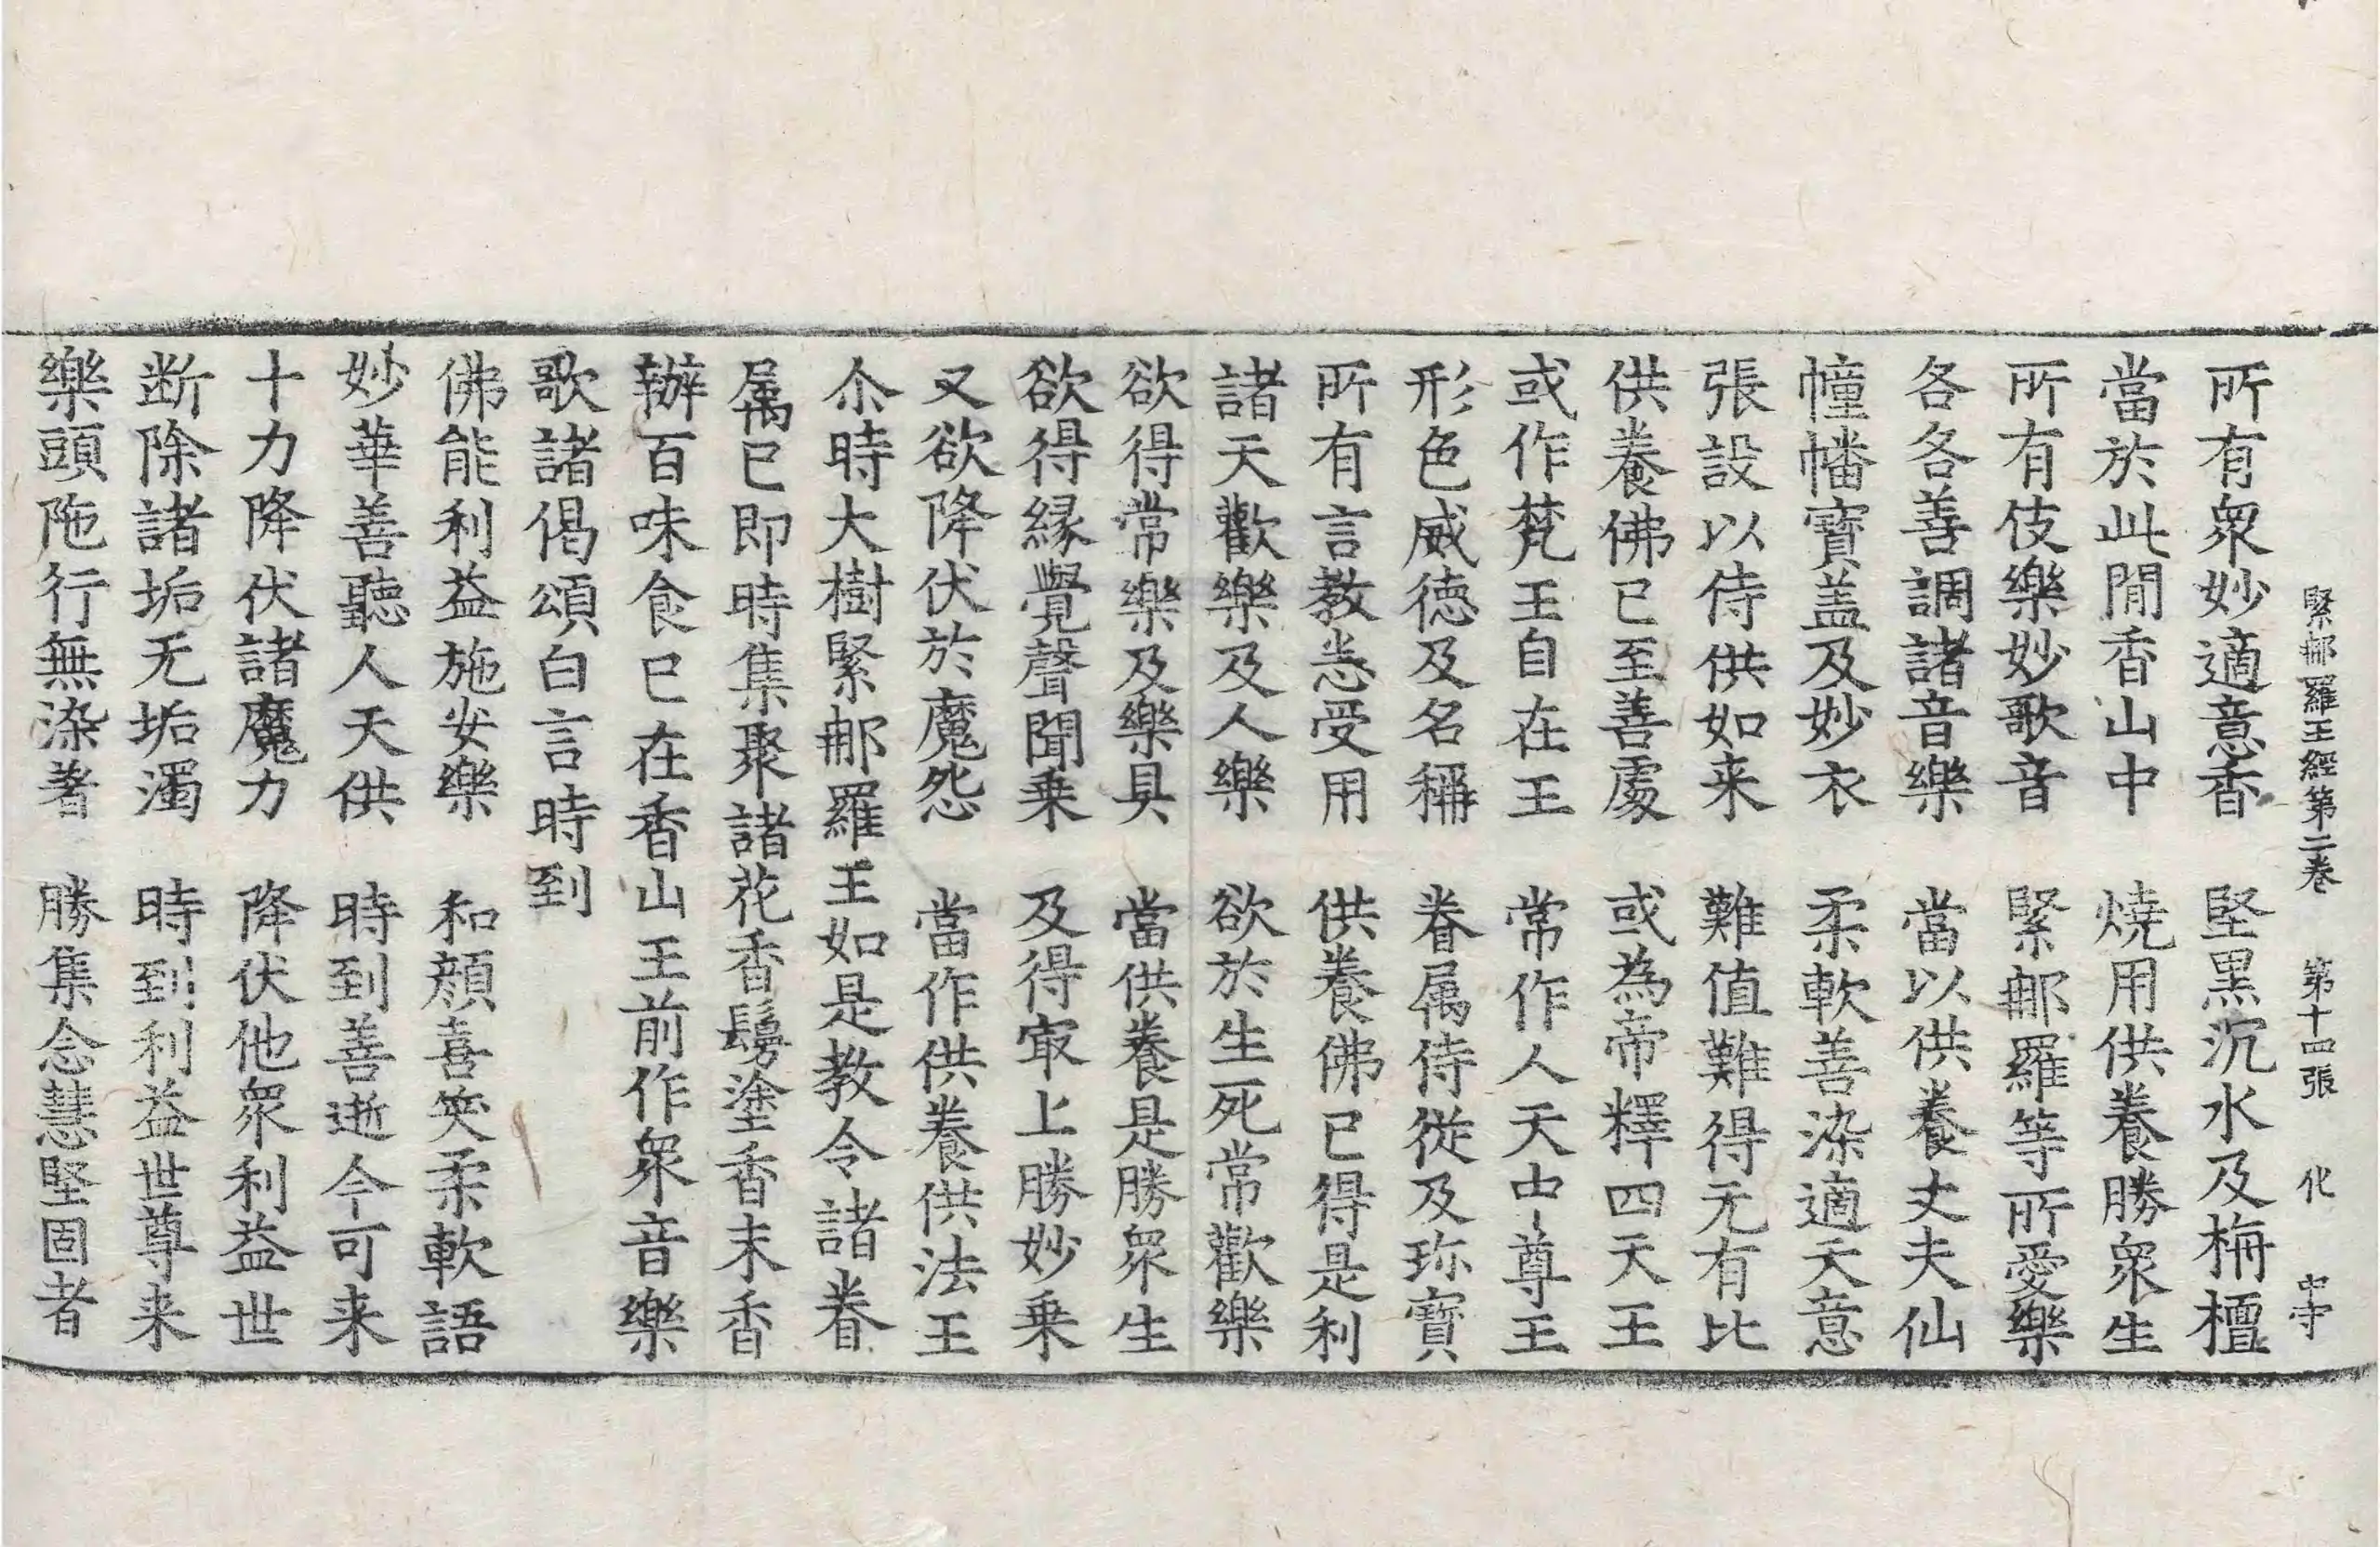 緊那羅王經第二卷　第十四張　化　中守
所有衆妙適意香　堅黑沉水及栴檀
當於此閒香山中　燒用供養勝衆生
所有伎樂妙歌音　緊那羅等所愛樂
各各善調諸音樂　當以供養丈夫仙
幢幡寶盖及妙衣　柔軟善染適天意
張設以侍供如来　難值難得无有比
供養佛已至善處　或為帝釋四天王
或作梵王自在王　常作人天中尊王
形色威德及名稱　眷属侍從及珎寶
所有言教悉受用　供養佛已得是利
諸天歡樂及人樂　欲於生死常歡樂
欲得常樂及樂具　當供養是勝衆生
欲得縁覺聲聞乗　及得冣上勝妙乗
又欲降伏於魔怨　當作供養供法王
尒時大樹緊那羅王如是教令諸眷
属已即時集聚諸花香鬘塗香末香
辦百味食已在香山王前作衆音樂
歌諸偈頌白言時到
佛能利益施安樂　和顔喜笑柔軟語
妙華善聽人天供　時到善逝今可来
十力降伏諸魔力　降伏他衆利益世
断除諸垢无垢濁　時到利益世尊来
樂頭陁行無染著　勝集念慧堅固者